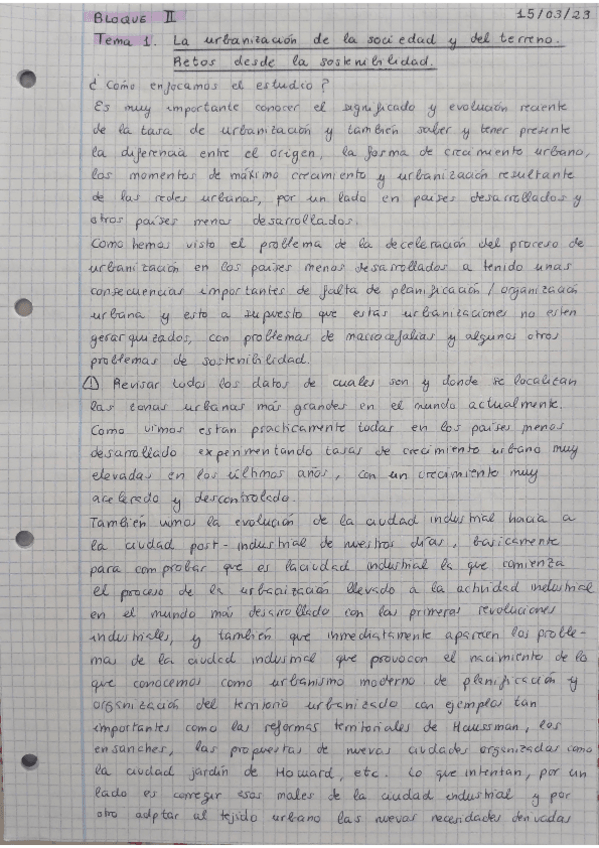 BLOQUE II
15/03/23
Tema 1. La urbanización de la sociedad y del terreno.
Retos desde la sostenibilidad.
¿Cómo enfocamos el estudio?
Es muy importante conocer el significado y evolución reciente
de la tasa de urbanización y también saber y tener presente
la diferencia entre el origen, la forma de crecimiento urbano,
los momentos de máximo crecimiento y urbanización resultante
de las redes urbanas, por un lado en países desarrollados y
otros países menos desarrollados.
Como hemos visto el problema de la deceleración del proceso de
urbanización en los países menos desarrollados a tenido unas
consecuencias importantes de falta de planificación/organización
urbana y esto a supuesto que estas urbanizaciones no esten
gerarquizados, con problemas de macrocefalias y algunos otros
problemas de sostenibilidad.
① Revisar todos los datos de cuales son y donde se localizan
las zonas urbanas más grandes en el mundo actualmente.
Como vimos estan practicamente todas en los países menos
desarrollado experimentando tasas de crecimiento urbano muy
elevadas en los últimos años, con un crecimiento muy
acelerado y descontrolado.
También vimos la evolución de la ciudad industrial hacia a
la ciudad post-industrial de nuestros días, basicamente
para comprobar que es la ciudad industrial la que comienza
el proceso de la urbanización llevado a la actividad industrial
en el mundo más desarrollado con las primeras revoluciones
industriales, y también que inmediatamente aparecen los proble-
mas de la ciudad industrial que provocan el nacimiento de lo
que conocemos como urbanismo moderno de planificación y
organización del territorio urbanizado con ejemplos tan
importantes como las reformas territoriales de Haussman, los
ensanches, las propuestas de nuevas ciudades organizadas como
la ciudad jardín de Howard, etc. Lo que intentan, por un
lado es corregir esos males de la ciudad industrial y por
otro adptar al tejido urbano las nuevas necesidades derivadas